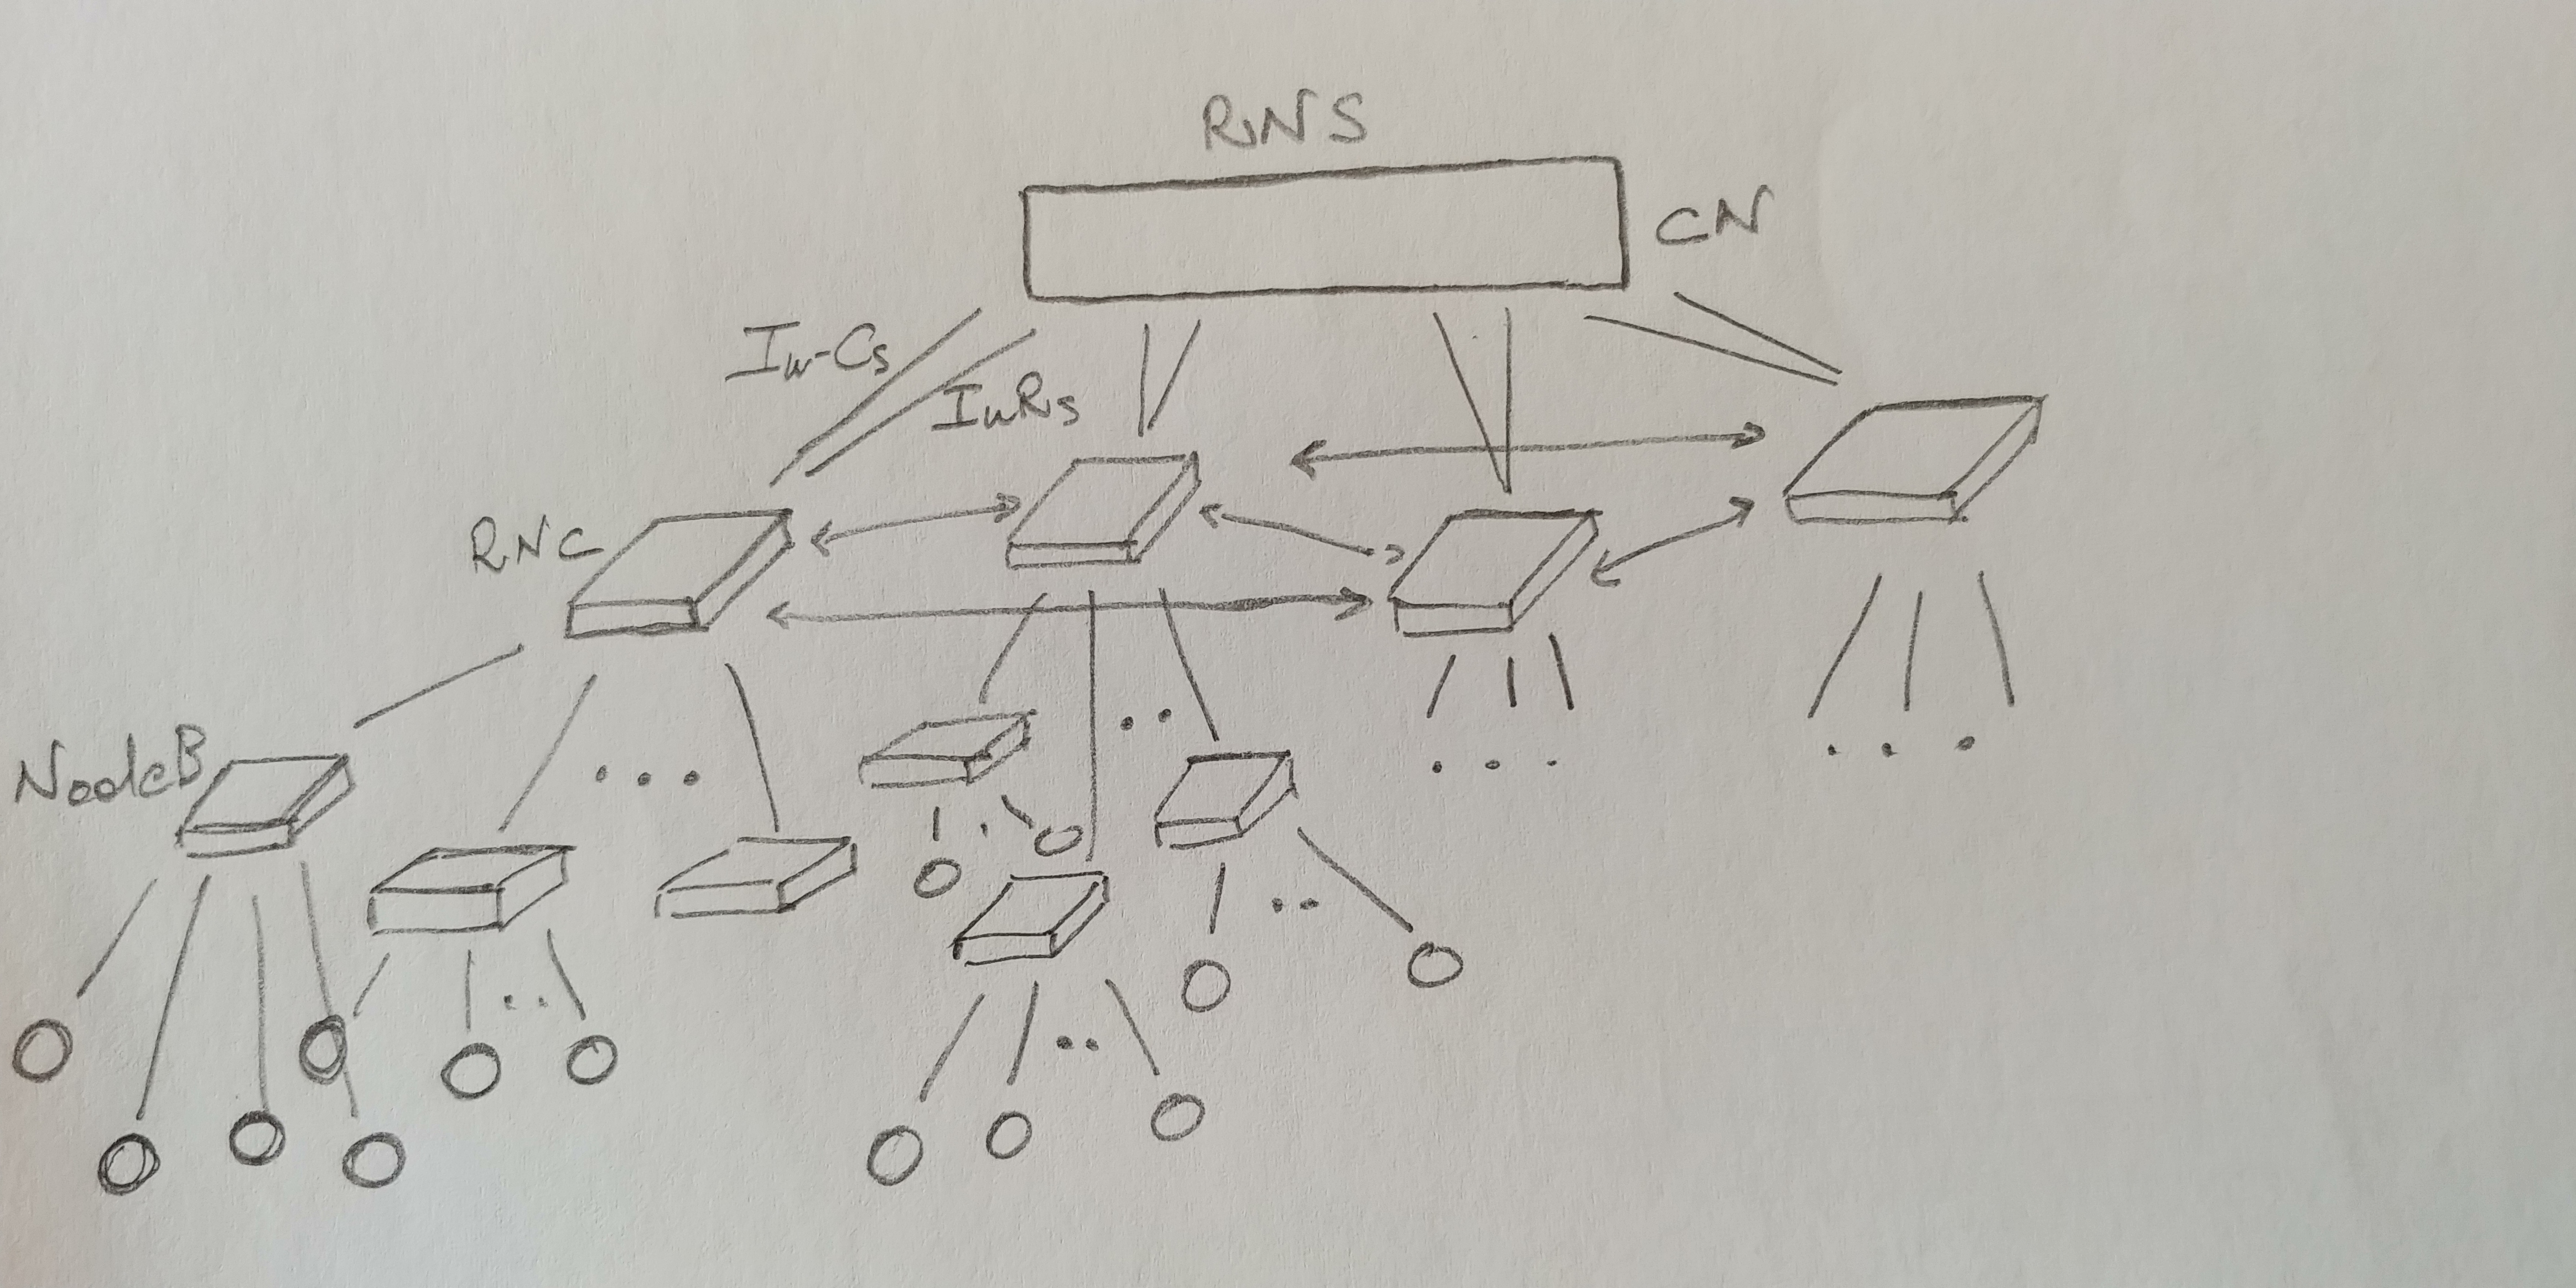 RNS
CN
Iu-Cs
IuRs
RNC
NodeB